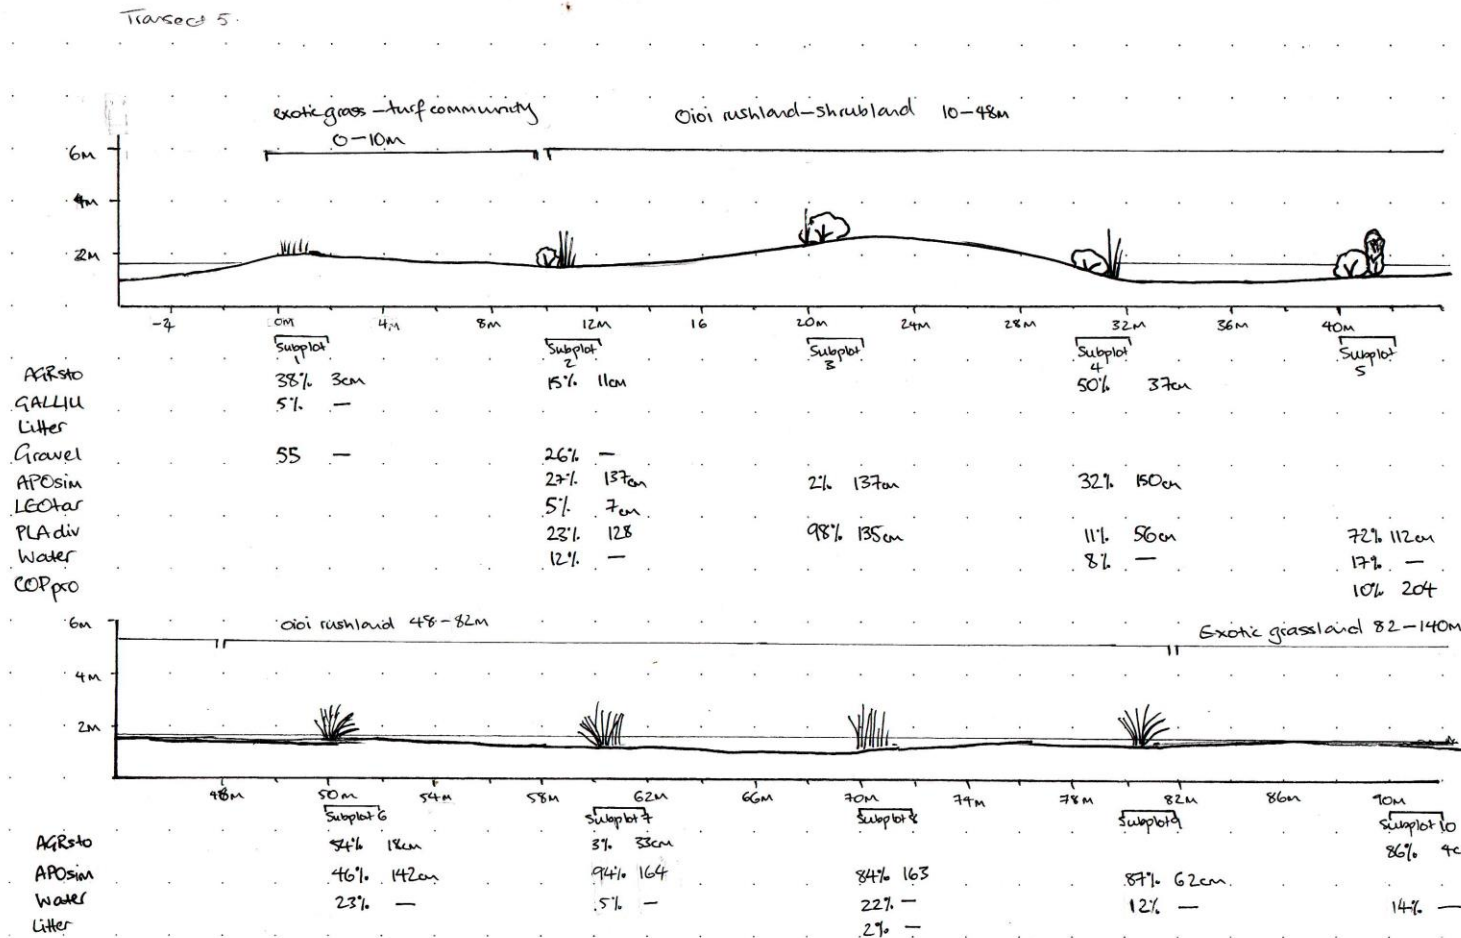 Transect 5.
exotic grass-turf community
0-10m
Oioi rushland-shrubland 10-48m
6m
4m
2m
-2 0m 4m 8m 12m 16 20m 24m 28m 32m 36m 40m
Subplot 1 Subplot 2 Subplot 3 Subplot 4 Subplot 5
AGRsto 38% 3cm 15% 11cm 50% 37cm
GALLIU 5% —
Litter
Gravel 55 — 26% —
APOsim 27% 137cm 2% 137cm 32% 150cm
LEOtar 5% 7cm
PLAdiv 23% 128 98% 135cm 11% 56cm 72% 112cm
Water 12% — 8% — 17% —
COPpro 10% 204
oioi rushland 48-82m
Exotic grassland 82-140m
6m
4m
2m
48m 50m 54m 58m 62m 66m 70m 74m 78m 82m 86m 90m
Subplot 6 Subplot 7 Subplot 8 Subplot 9 Subplot 10
AGRsto 54% 18cm 3% 33cm 86% 4c
APOsim 46% 142cm 94% 164 84% 163 87% 62cm
Water 23% — 5% — 22% — 12% — 14% —
Litter 2% —